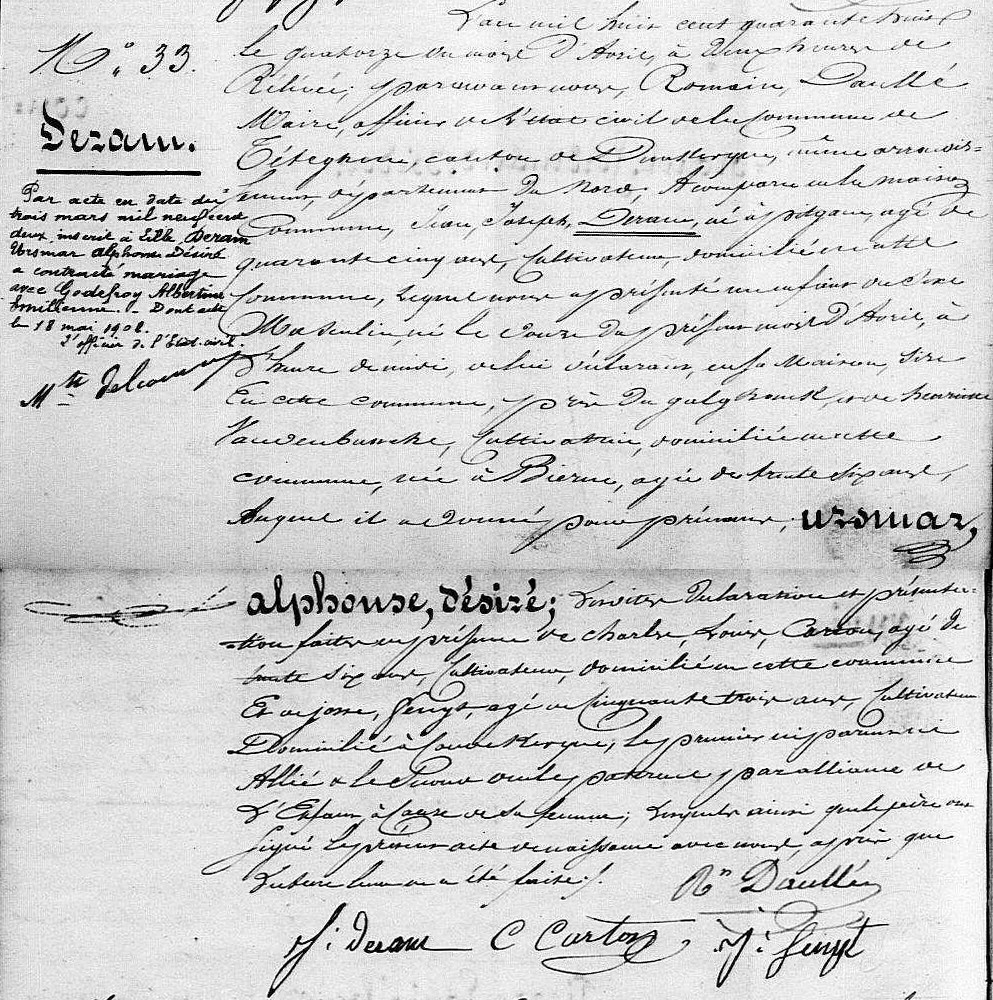 N.° 33.
Deram.
Par acte en date du
trois mars mil neuf cent
deux, inscrit à Lille, Deram
Ursmar Alphonse Désiré
a contracté mariage
avec Godefroy Albertine
Emilienne. - Dont acte
le 18 mai 1908.
L'officier de l'Etat-civil.
L'an mil huit cent quarante huit
le quatorze du mois d'Avril, à Deux heures de
Rélévée, pardevant nous, Romain, Daullé
Maire, officier de l'état civil de la Commune de
Téteghem, canton de Dunkerque, même arrondis-
sement, département du Nord, A comparu en la maison
Commune, Jean Joseph, Deram, né à pitgam, agé de
quarante cinq ans, Cultivateur, domicilié en cette
Commune, Lequel nous a présenté un enfant de sexe
Masculin, né le Douze du présent mois d'Avril, à
heure de midi, de lui déclarant, en sa Maison, Sise
En cette commune, près Du galghouck, et de henriette
Vandenbussche, Cultivatrice, domiciliée en cette
commune, née à Bierne, agée de trente six ans,
Auquel il a donné pour prénoms, ursmar,
alphonse, désiré; Lesdites Déclaration et présenta-
tion faites en présence de charles, Louis, Carton, agé de
trente six ans, Cultivateur, domicilié en cette commune
Et de josse, Genyt, agé de Cinquante trois ans, Cultivateur
Domicilié à Coudekerque, Le premier
Allié & le Second oncle paternel par alliance de
L'Enfant, à Cause de sa femme; Lesquels ainsi que le père ont
Signé Le présent acte de naissance avec nous, après que
Lecture leur en a été faite./.
Rn Daullé
J. j. deram C Carton J. j. Genyt